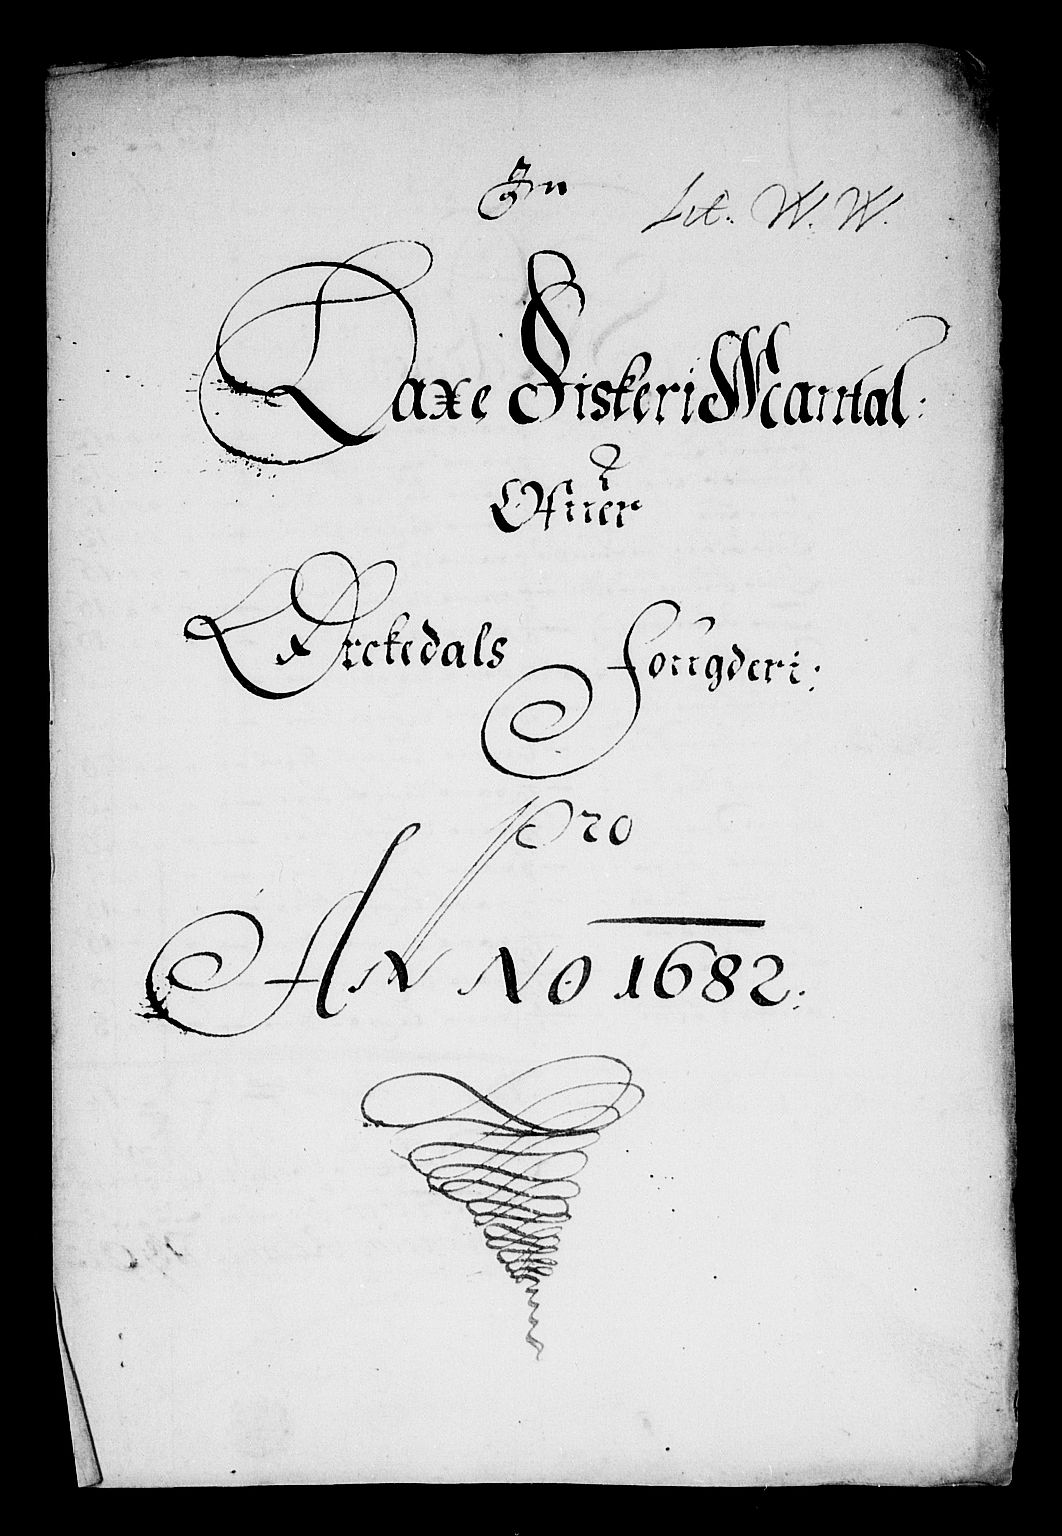 Jn
Lit. W. W.
Laxe Fiskeri Mantal:
Ofuer
Orckedals Fougderi:
Pro
ANNNO 1682: